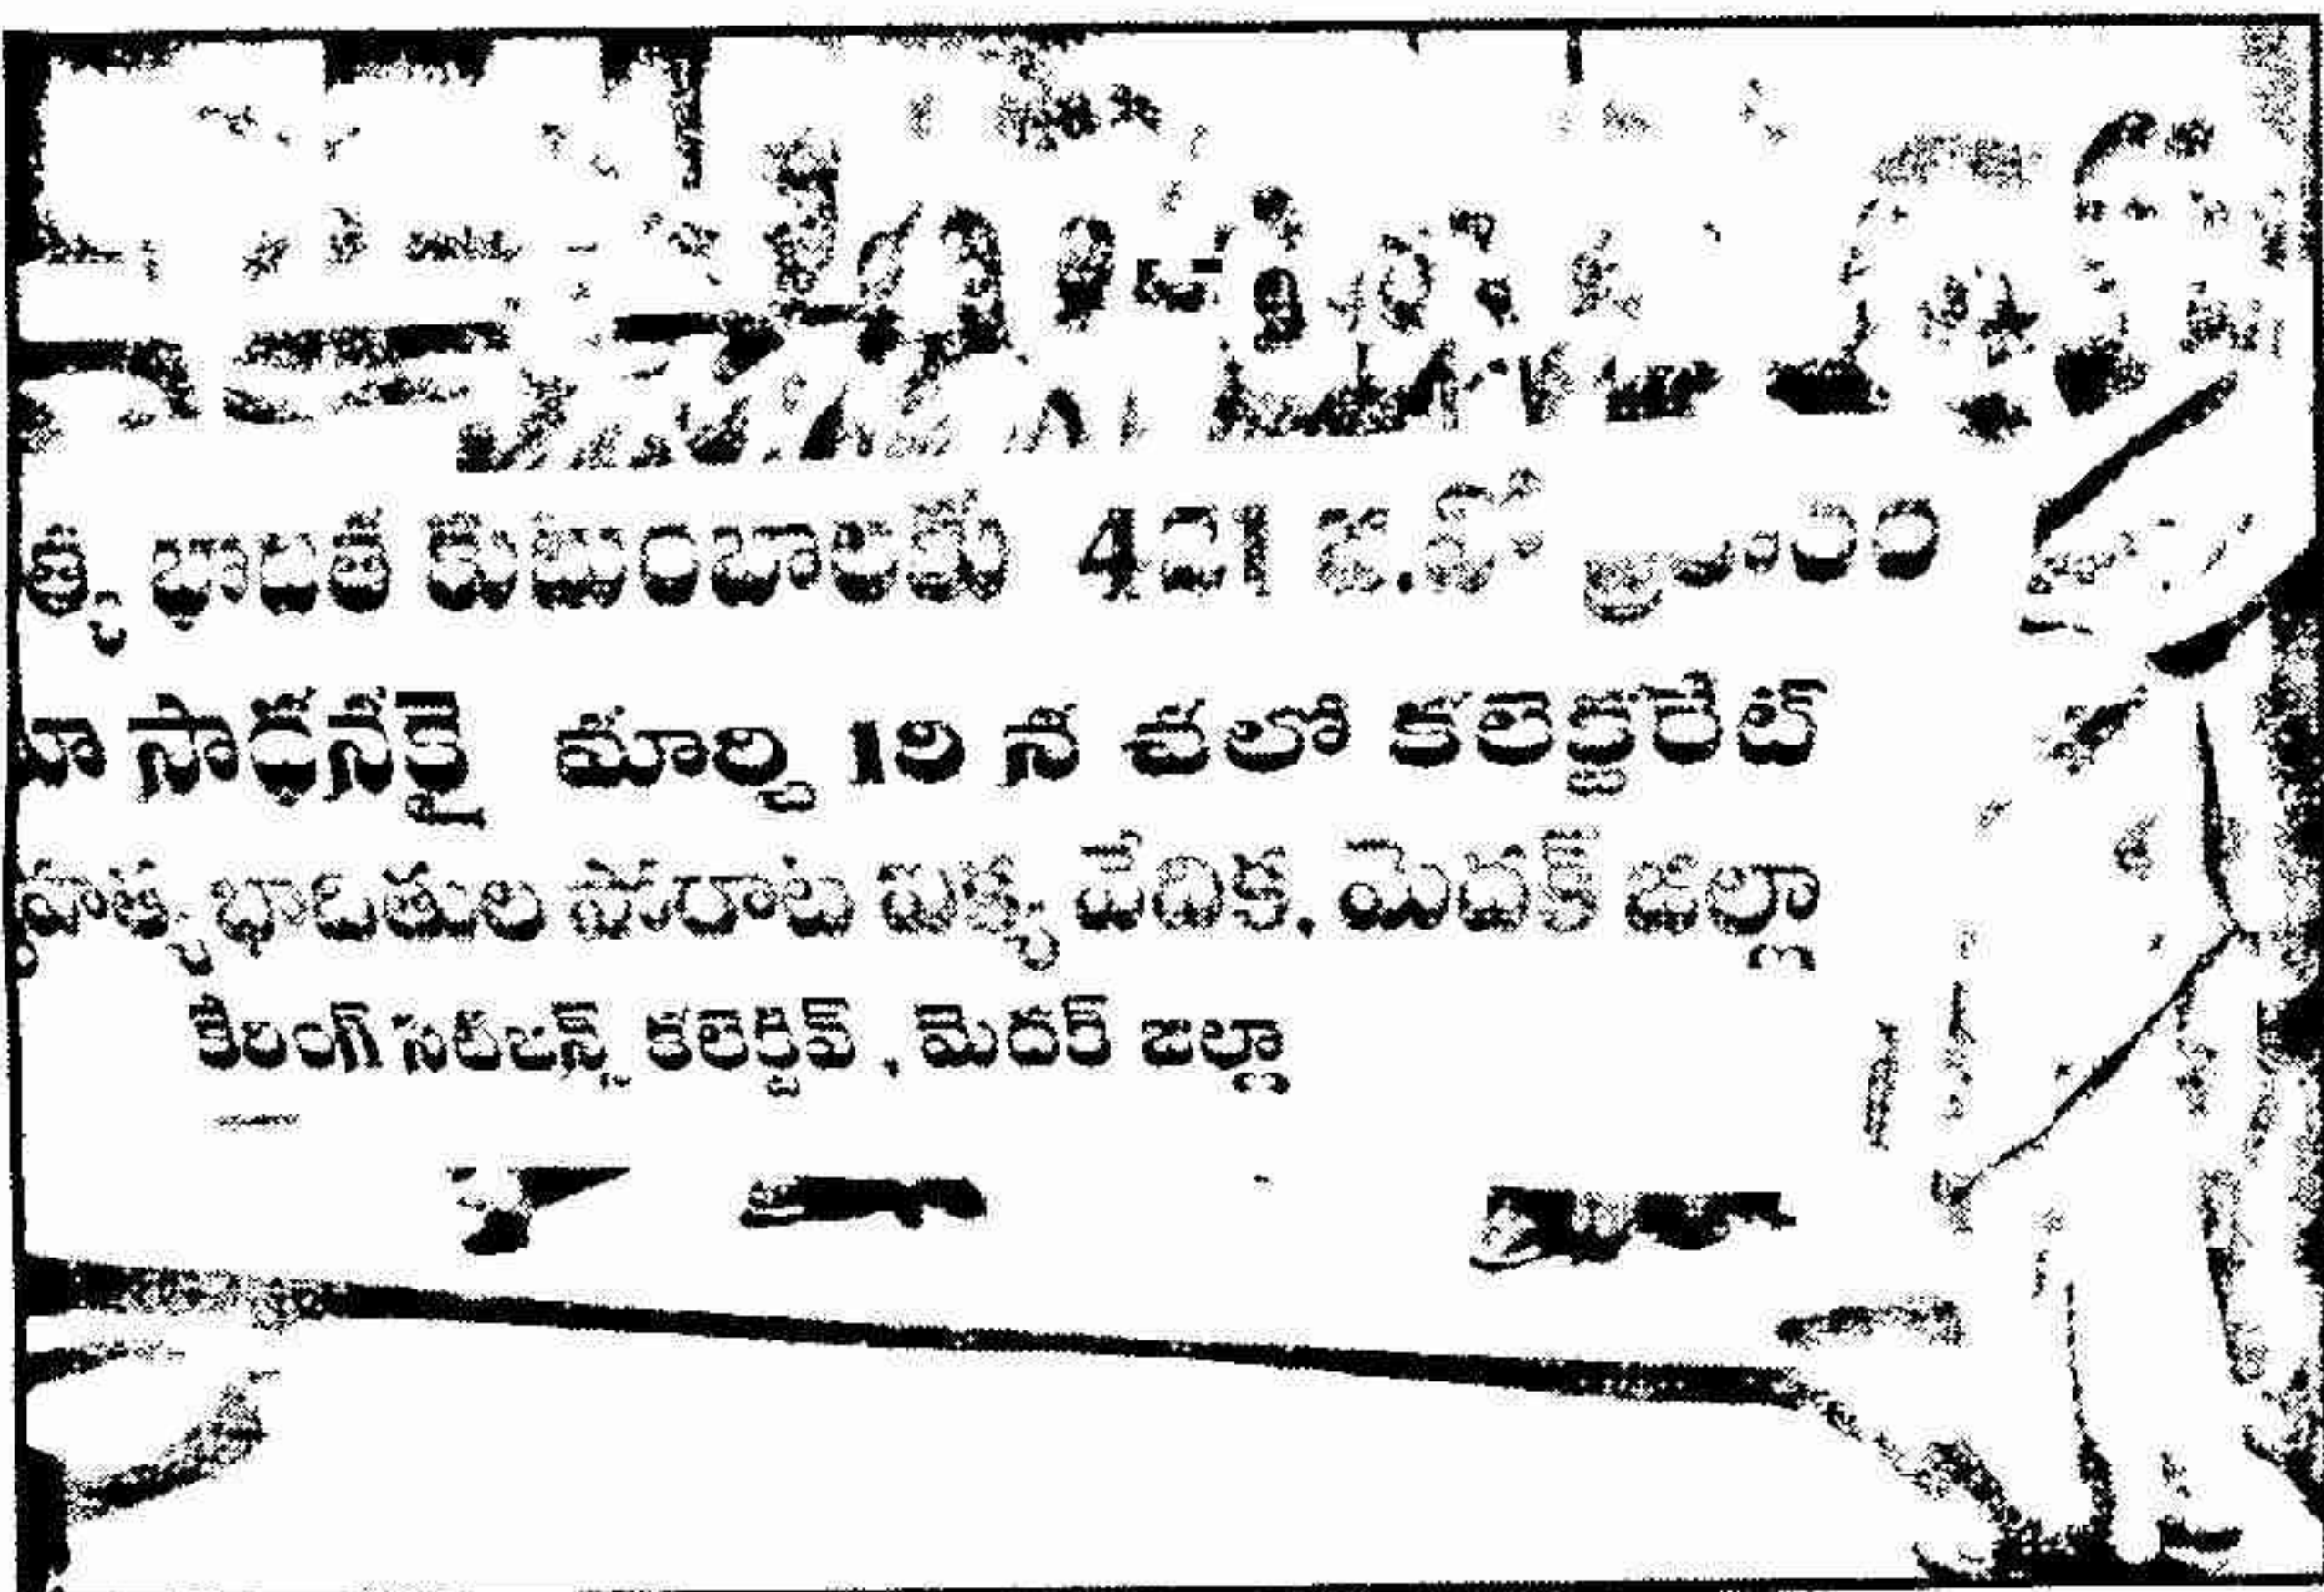 భాదిత కుటుంబాలకు 421 జి.వో ప్రకారం
సాధనకై మార్చి 19 న చలో కలెక్టరేట్
భాదితుల పోరాట ఐక్య వేదిక, మెదక్ జిల్లా
కేరింగ్ సిటిజన్స్ కలెక్టివ్, మెదక్ జిల్లా